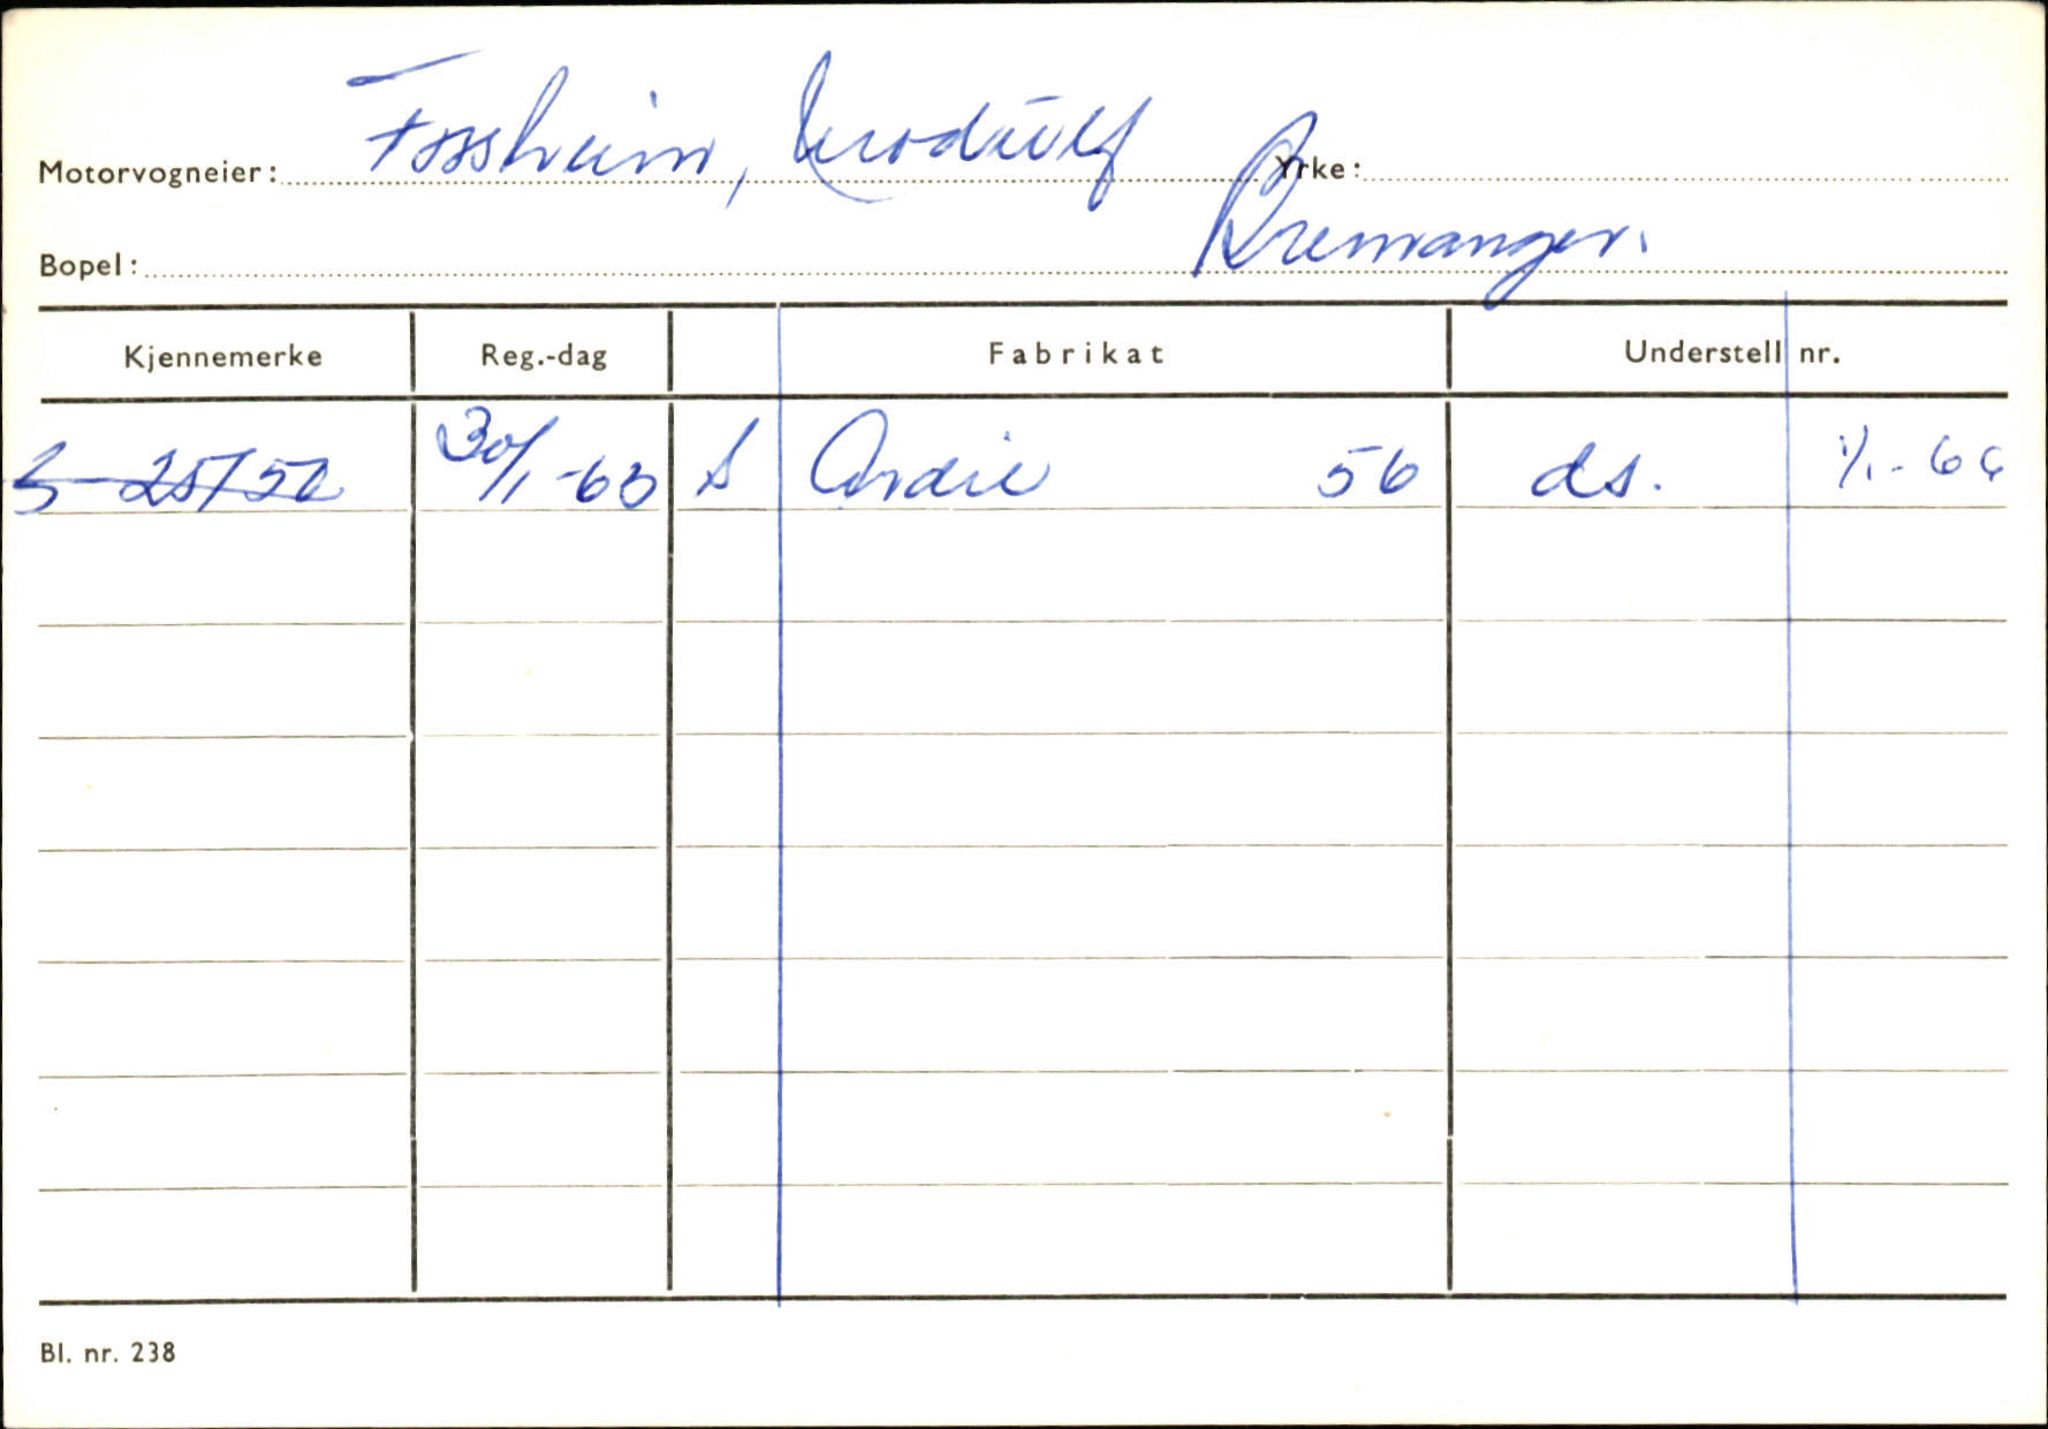 Motorvogneier: Fossheim, Yrke:
Bopel: Bremanger.
Kjennemerke Reg.-dag Fabrikat Understell nr.
S-25750 30/1-63 S Ardie 56 ds. 1/1-66
Bl. nr. 238